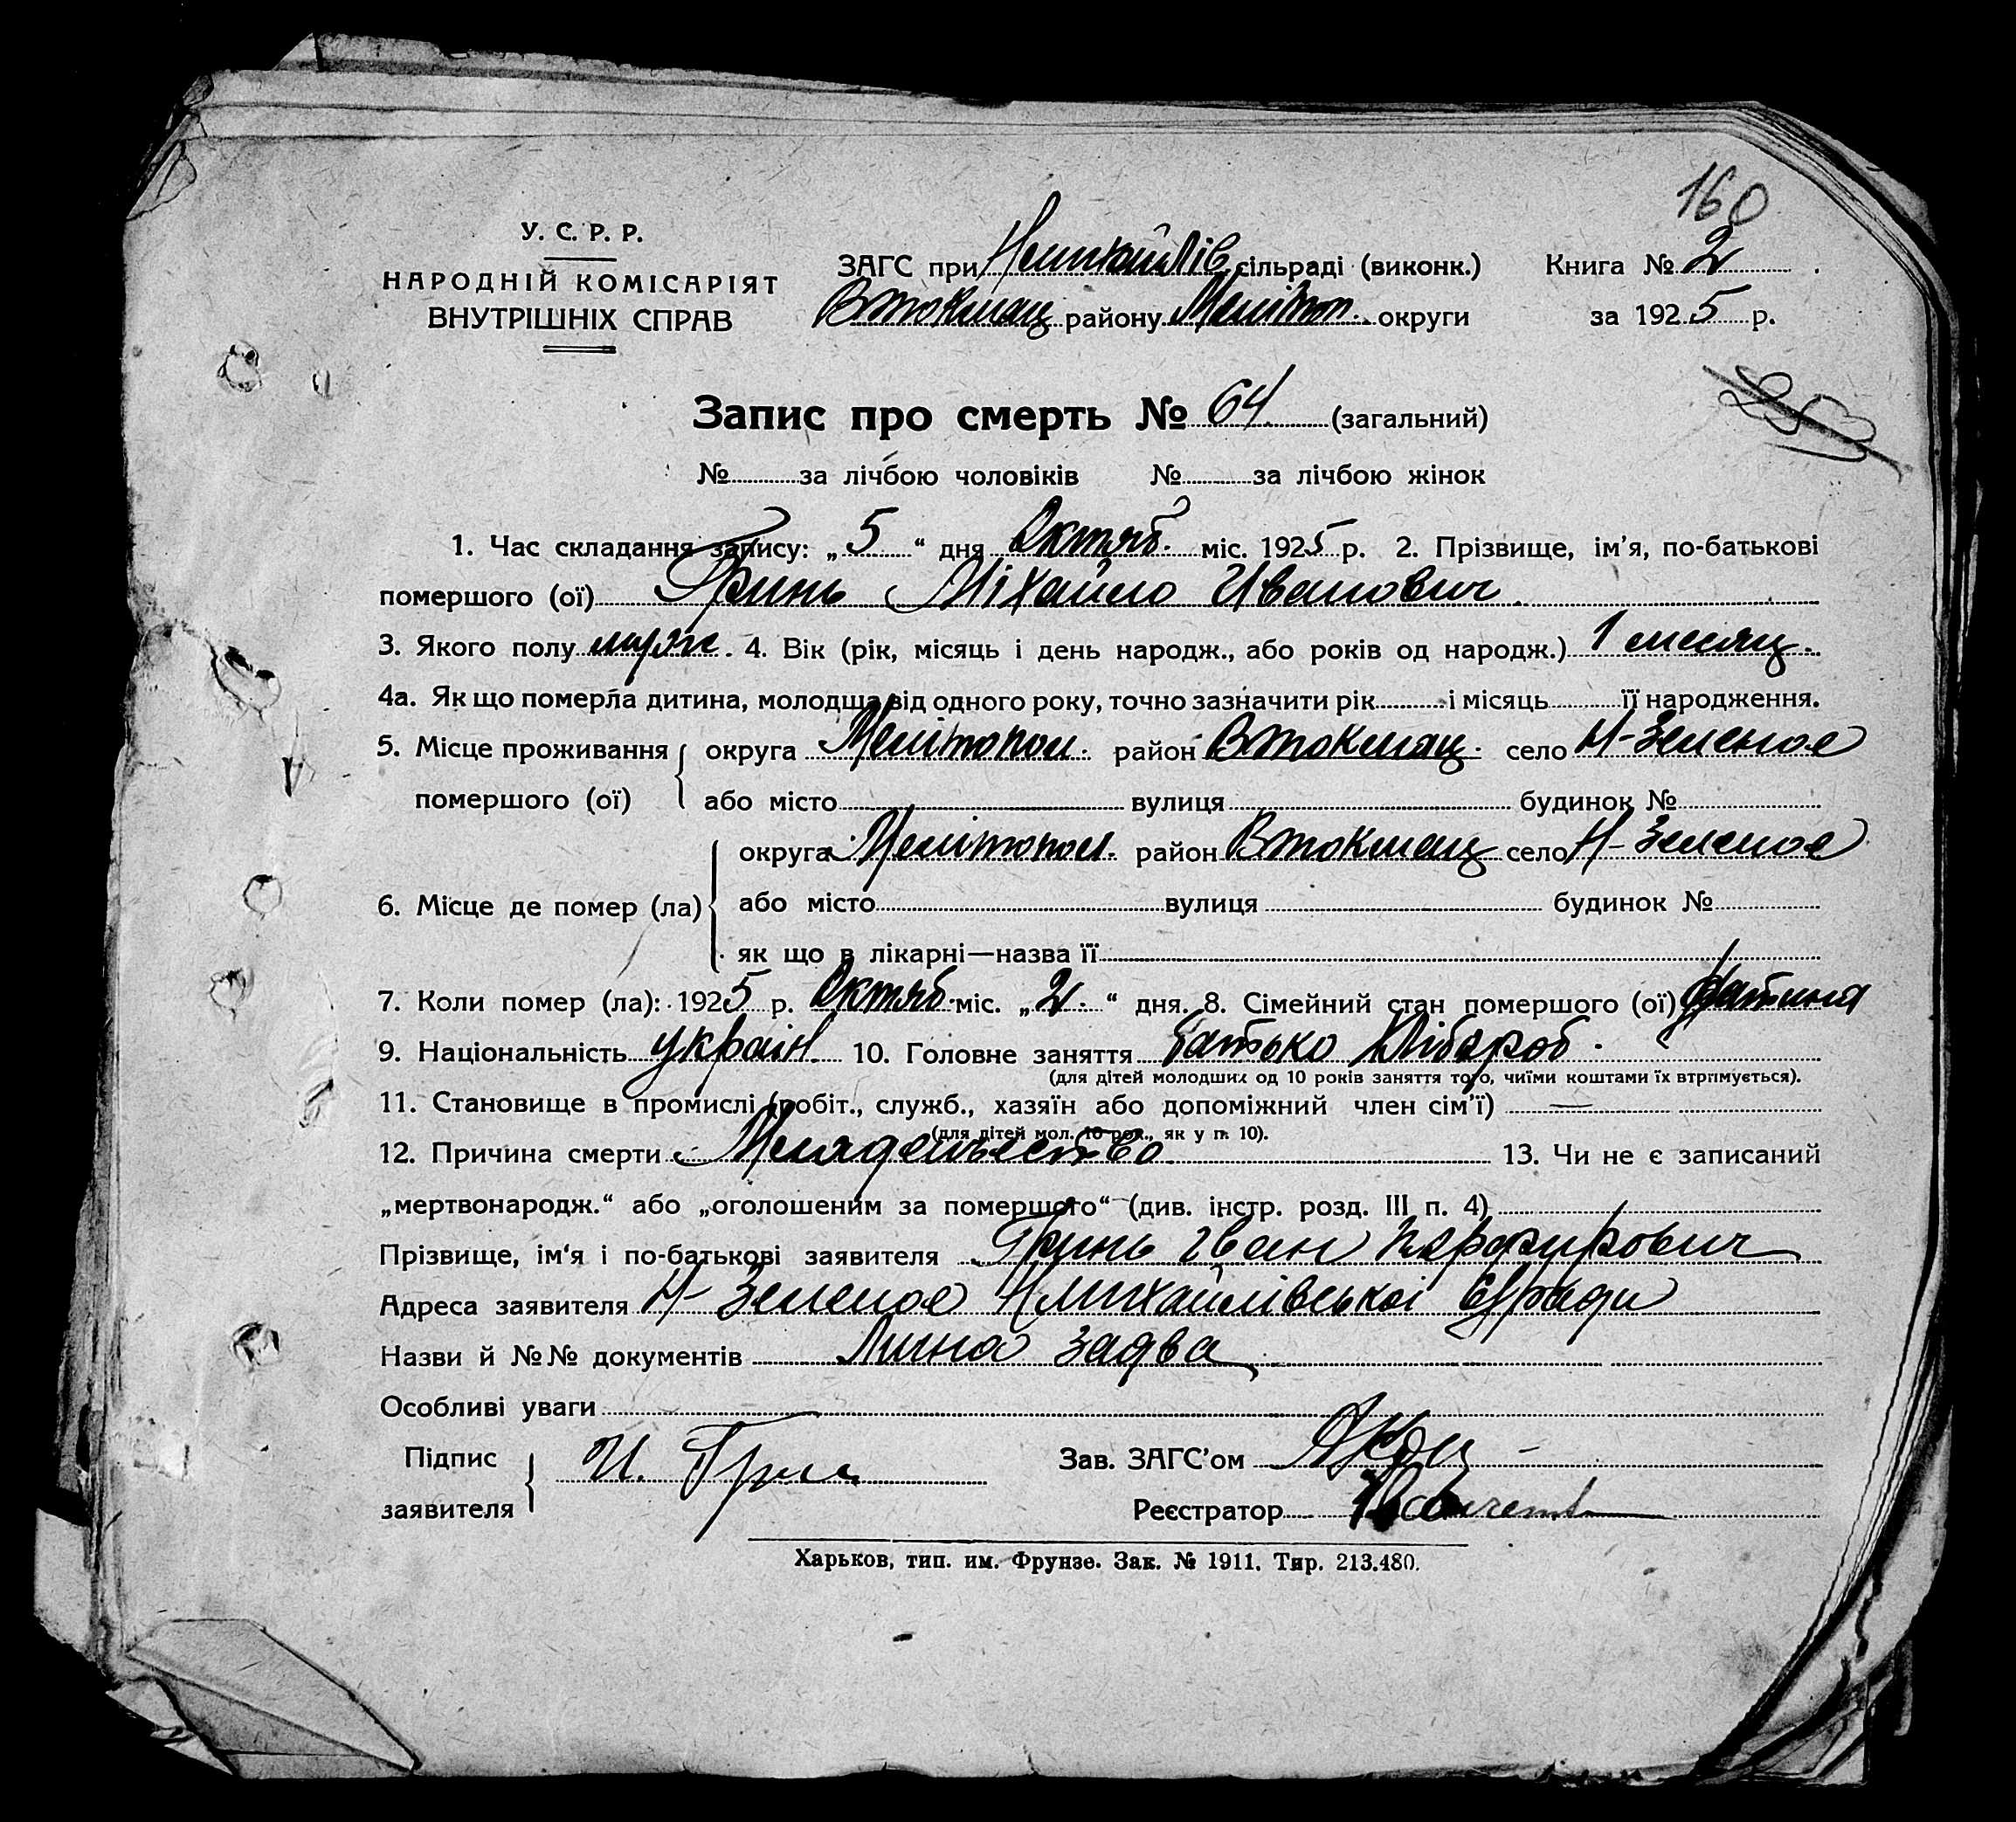 160
У. С. Р. Р.
НАРОДНІЙ КОМІСАРІЯТ
ВНУТРІШНІХ СПРАВ
ЗАГС при сільраді (виконк.) Книга № 2
Втокмац району Меліт. округи за 1925 р.
Запис про смерть № 64 (загальний)
№ за лічбою чоловіків № за лічбою жінок
1. Час складання запису: „5“ дня Октяб. міс. 1925 р. 2. Прізвище, ім'я, по-батькові
помершого (ої) Гринь Міхайло Иванович
3. Якого полу муж. 4. Вік (рік, місяць і день народж., або років од народж.) 1 месяц.
4а. Як що померла дитина, молодша від одного року, точно зазначити рік і місяць її народження.
5. Місце проживання округа Мелітопол. район Втокмац. село Н-Зеленое
помершого (ої) або місто вулиця будинок №
округа Мелітопол. район Втокмац село Н-Зеленое
6. Місце де помер (ла) або місто вулиця будинок №
як що в лікарні—назва її
7. Коли помер (ла): 1925 р. Октяб. міс. „2.“ дня. 8. Сімейний стан помершого (ої) Дитина
9. Національність україн. 10. Головне заняття батько Хлібороб.
(для дітей молодших од 10 років заняття того, чиїми коштами їх втримується).
11. Становище в промислі (робіт., служб., хазяїн або допоміжний член сім'ї) —
(для дітей мол. 10 рок., як у п. 10).
12. Причина смерти Младенчество 13. Чи не є записаний
„мертвонародж.“ або „оголошеним за помершого“ (див. інстр. розд. III п. 4)
Прізвище, ім'я і по-батькові заявителя Гринь Іван Порфирович
Адреса заявителя Н-Зеленое Нмихайлівськоі С/ради
Назви й №№ документів Лична задва
Особливі уваги
Підпис И. Гринь Зав. ЗАГС'ом
заявителя Реєстратор
Харьков, тип. им. Фрунзе. Зак. № 1911. Тир. 213.480.